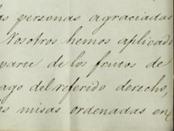 las personas agraciadas
Nosotros hemos aplicado
parte de los frutos de
pago del referido derecho,
as misas ordenadas en